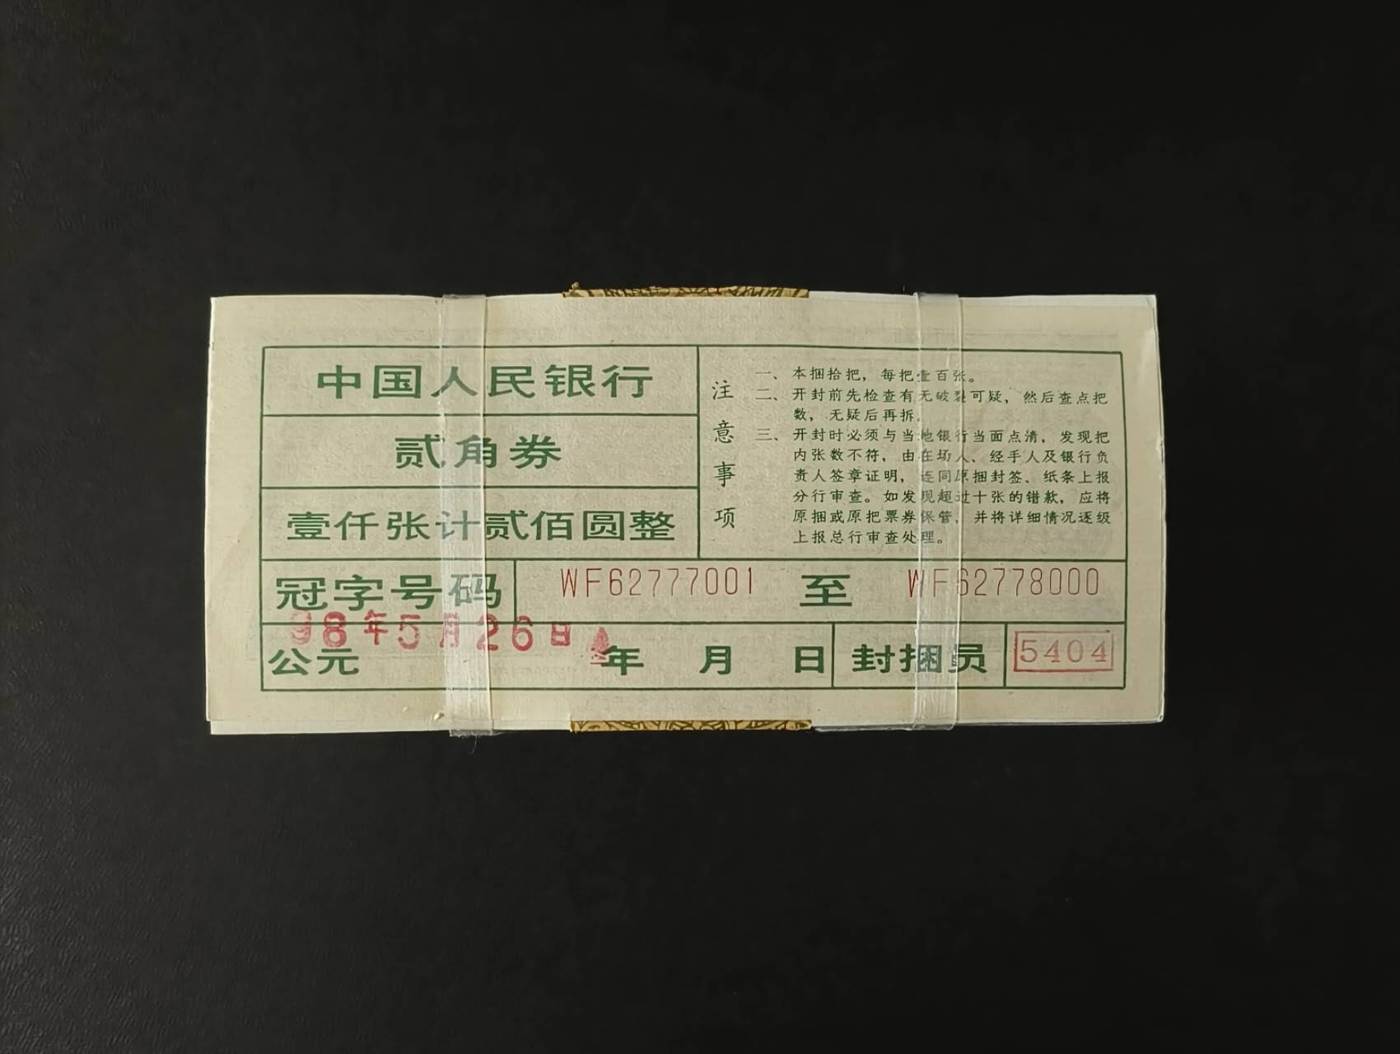 中国人民银行
贰角券
壹仟张计贰佰圆整
注意事项
一、本捆拾把，每把壹百张。
二、开封前先检查有无破裂可疑，然后查点把
数，无疑后再拆。
三、开封时必须与当地银行当面点清，发现把
内张数不符，由在场人、经手人及银行负
责人签章证明，连同原捆封签、纸条上报
分行审查。如发现超过十张的错款，应将
原捆或原把票券保管，并将详细情况逐级
上报总行审查处理。
冠字号码 WF62777001 至 WF62778000
98年5月26日
公元 年 月 日 封捆员 5404